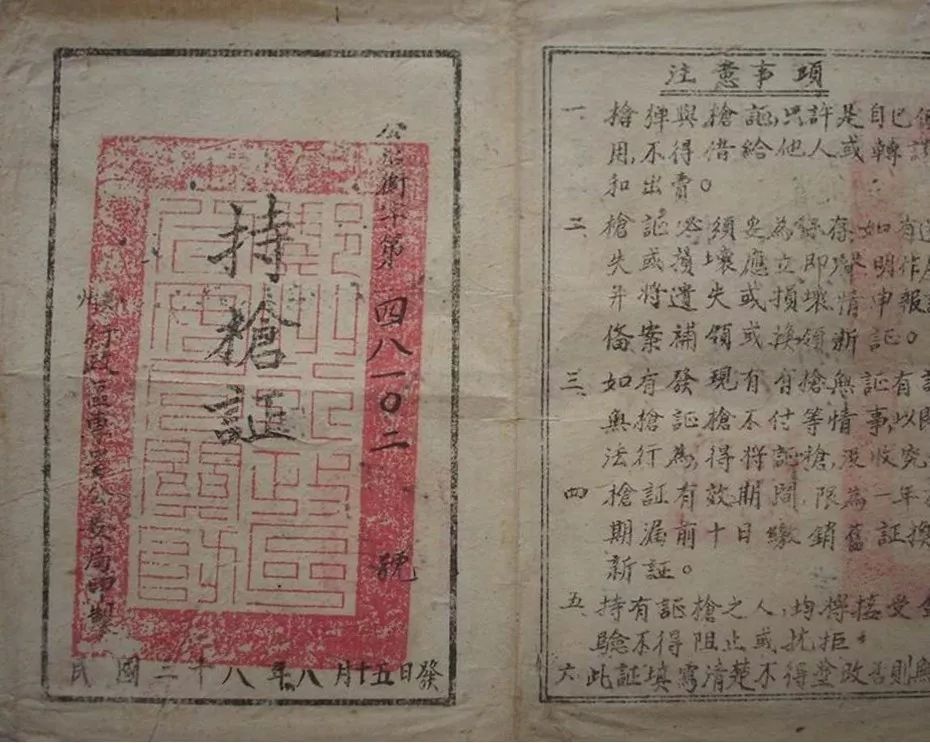 持槍証
第四八一〇二號
行政區專員公安局印製
民國三十八年八月十五日發
注意事項
一、槍彈與槍証,只許是自己
用,不得借給他人或轉
和出賣。
二、槍証必須妥為保存如有
失或損壞應立即聲明作
并將遺失或損壞情申報
備案補領或換領新証。
三、如有發現有槍無証有
無槍証槍不付等情事,以
法行為,得將証槍,沒收究
四、槍証有效期間,限為一年
期滿前十日繳銷舊証換
新証。
五、持有証槍之人,均得接受
驗不得阻止或抗拒。
六、此証填寫清楚不得塗改否則無